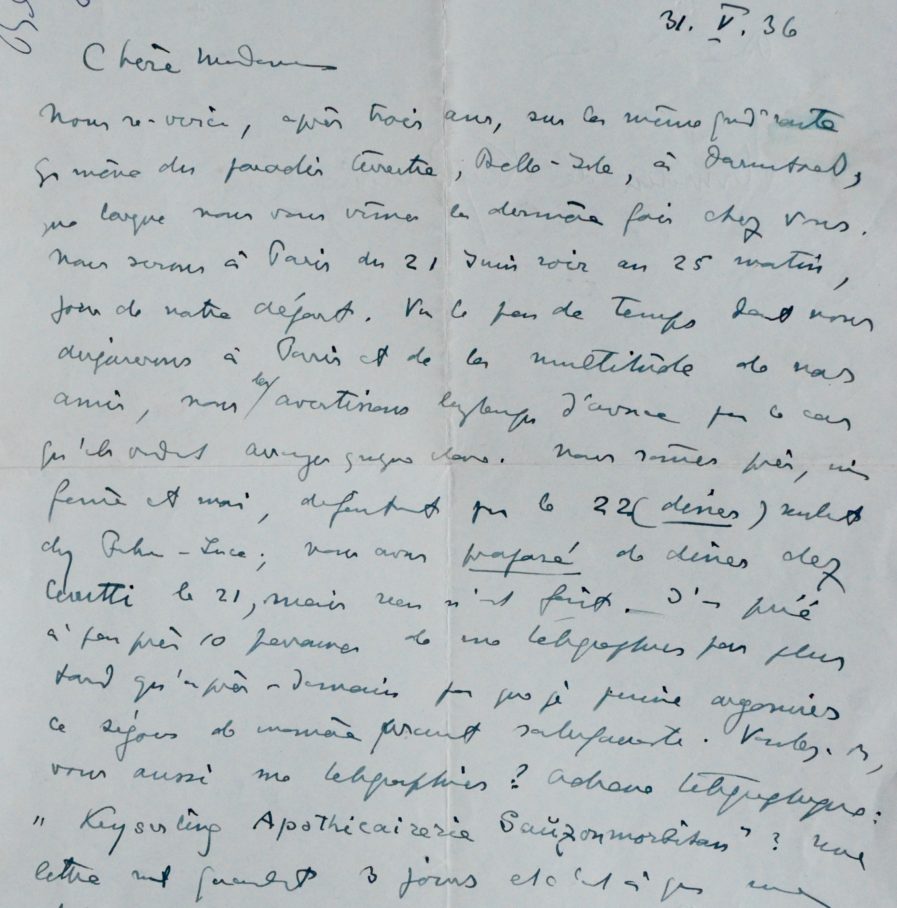 31. V. 36
Chère Madame
Nous re-voici, après trois ans, sur la même grand'route
qui mène du paradis terrestre, Belle-Isle, à Darmstadt,
laquelle nous vous vîmes la dernière fois chez Vous.
Nous serons à Paris du 21 Juin soir au 25 matin,
jour de notre départ. Vu le peu de temps dont nous
disposerons à Paris et de la multitude de nos
amis, nous les avertissons longtemps d'avance pour le cas
qu'ils veulent arranger quelque chose. Nous sommes pris, ma
femme et moi, pour le 22 (dîner) seulement
chez -Luce; nous avons proposé de dîner chez
le 21, mais rien n'est fait. J'ai prié
à peu près 10 personnes de me télégraphier pas plus
tard qu'après-demain pour que je puisse organiser
ce séjour de manière satisfaisante. Voulez-
vous aussi me télégraphier? Adresse télégraphique:
"Keyserling Apothicairerie Sauzonmorbihan"? Une
lettre met 3 jours et c'est à une